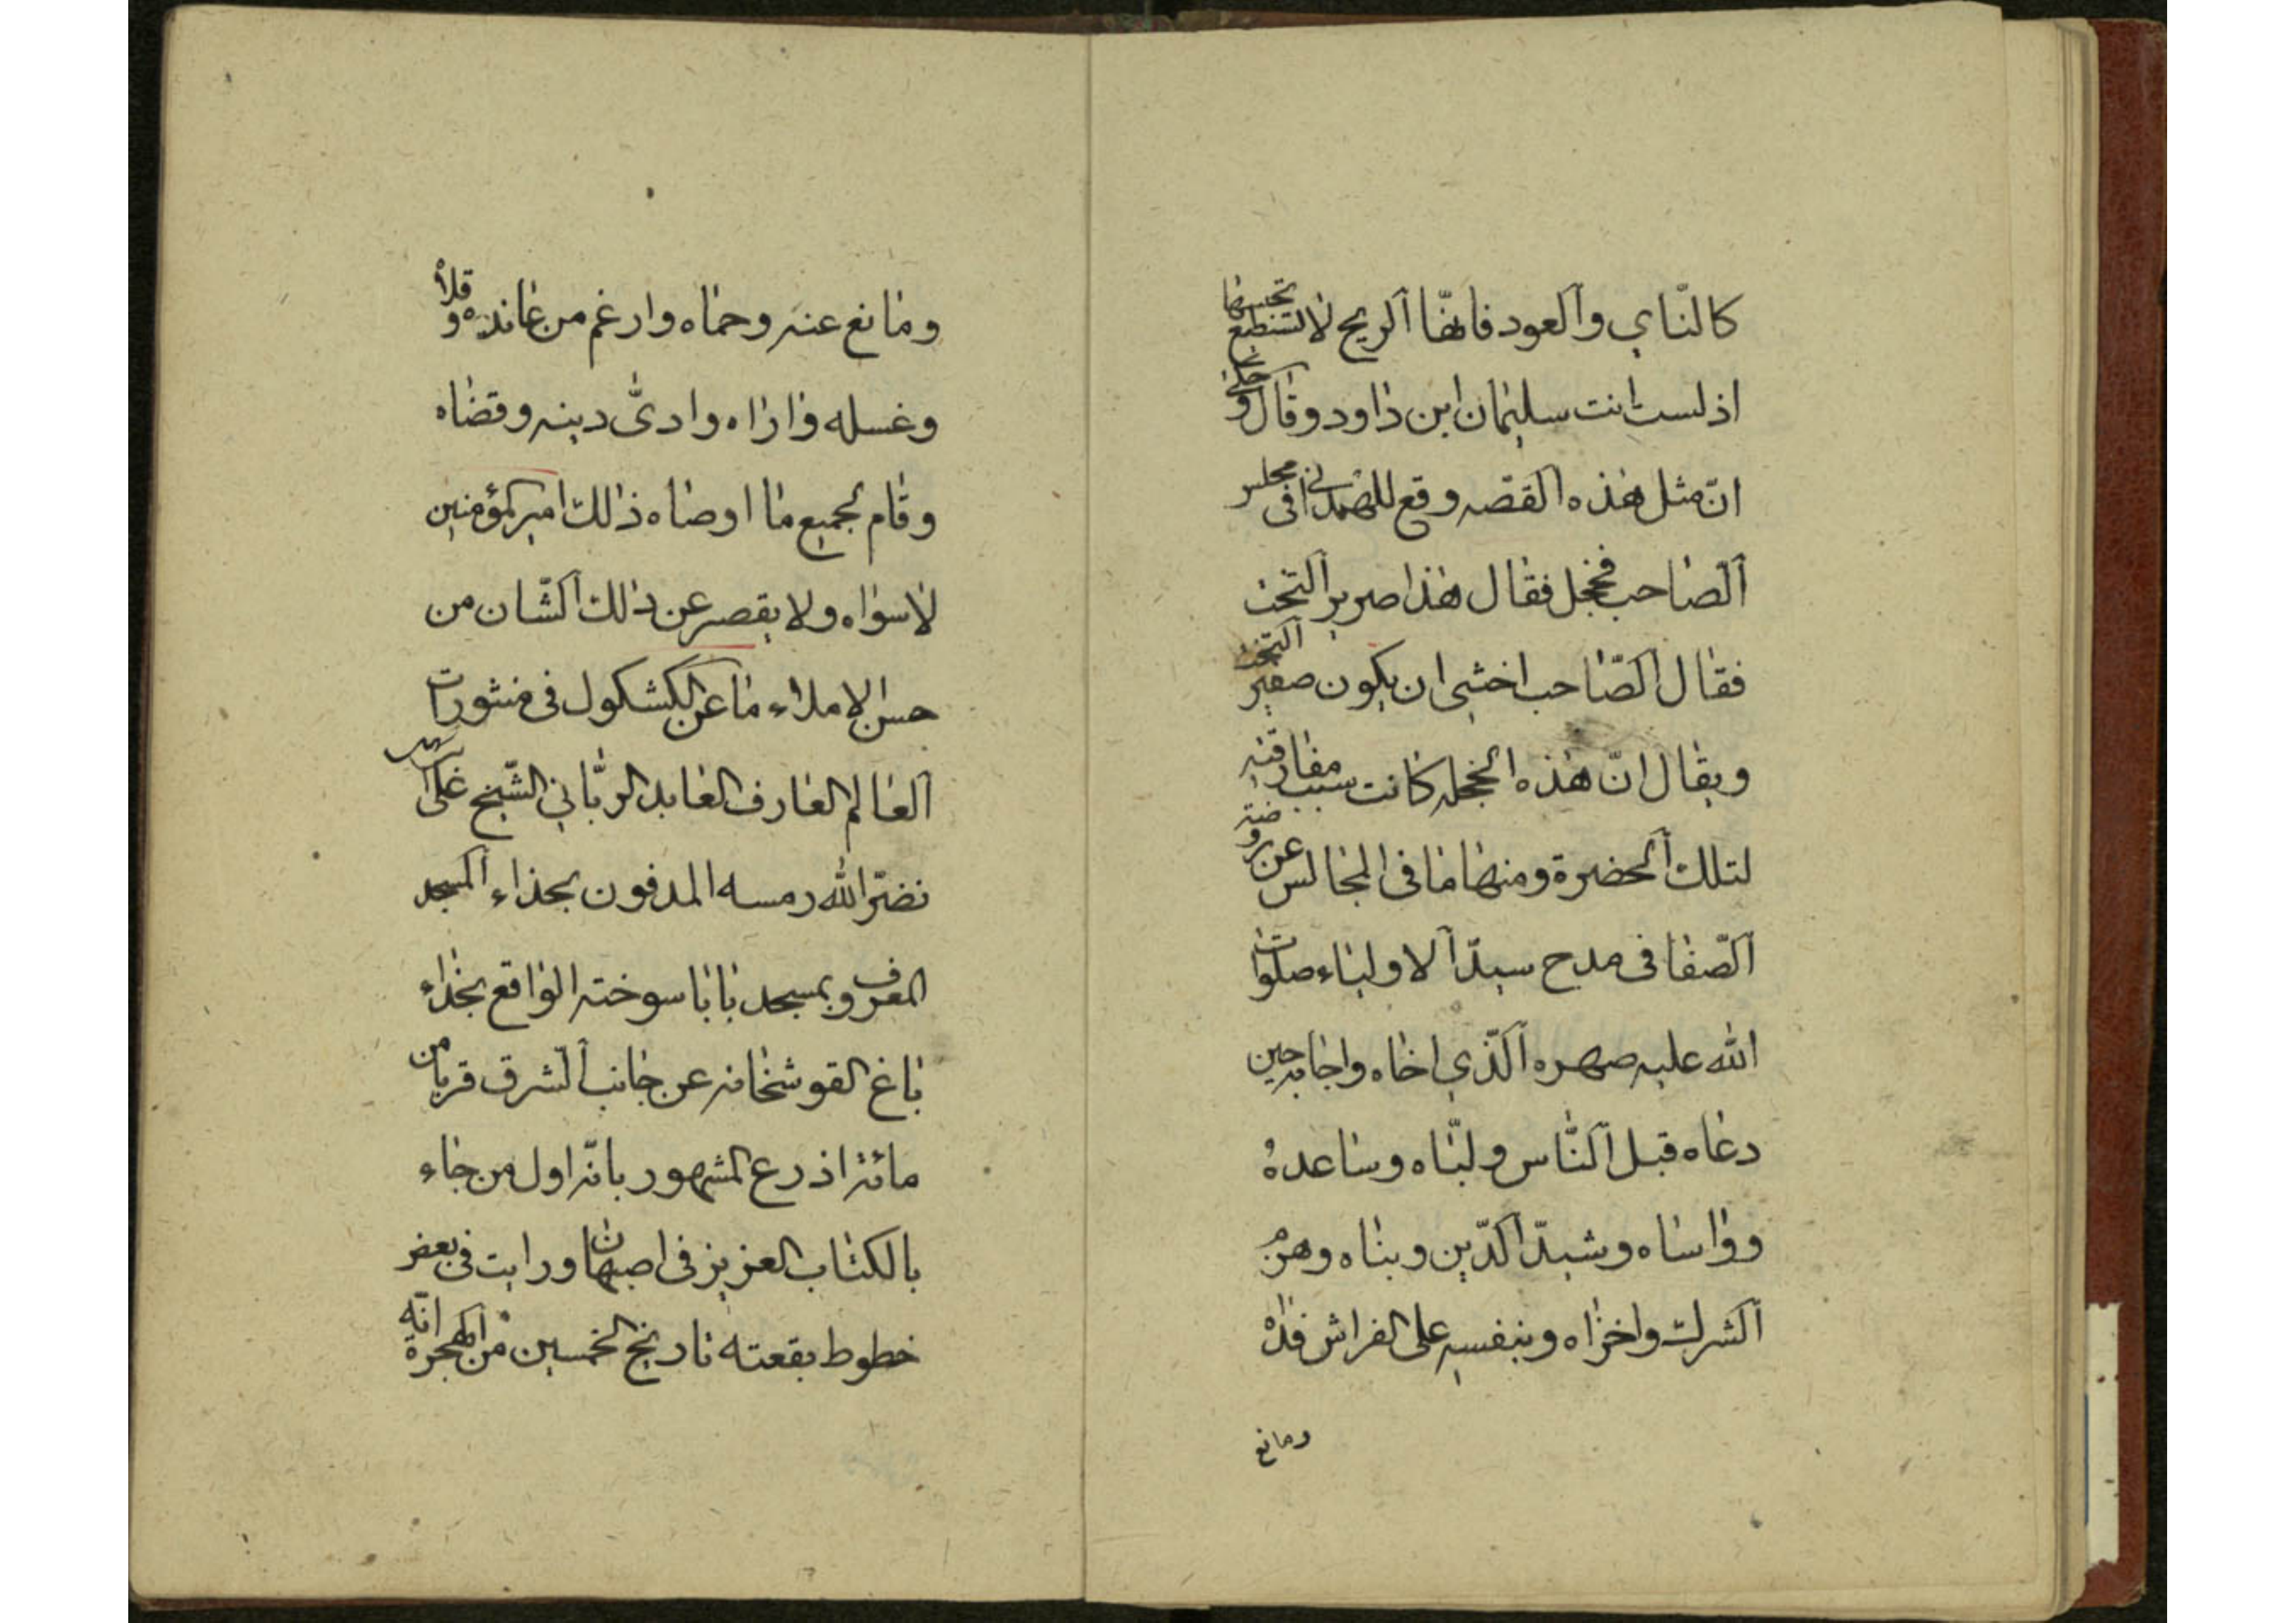 كالنّاي والعود فانهّا الريح لا تستطيع تحبسها
اذ لست انت سليمان ابن داود وقال و حكى
انّ مثل هذه القصّه وقع للهمدانى فى مجلس
الصّاحب فخجل فقال هذا صرير التخت
فقال الصّاحب اخشى ان يكون صفير التخت
ويقال انّ هذه الخجله كانت سبب مفارقته
لتلك الحضرة ومنها ما فى المجالس عن روضة
الصّفا فى مدح سيّد الاولياء صلوات
الله عليه صهره الّذي اخاه واجابه حين
دعاه قبل النّاس ولبّاه وساعدهُ
وواساه وشيّد الدّين وبناه وهزم
الشرك واخزاه وبنفسه على الفراش فداهْ
ومانع
ومانع عنه وحماه وارغم من عانده و قلاهْ
وغسله واراه وادىّ دينه وقضاه
وقام بجميع ما اوصاه ذالك امير المؤمنين
لا سواه ولا يقصر عن ذلك الشّان من
حسن الاملاء ما عن الكشكول فى منثورات
العالم العارف العابد الربّاني الشّيخ على
نضرّ الله رمسه المدفون بحذاء المسجد
المعروف بمسجد بابا سوخته الواقع بحذاء
باغ القوشخانه عن جانب الشرق قربا من
مائة اذرع المشهور بانّه اول من جاء
بالكتاب العزيز فى اصبهان ورايت فى بعض
خطوط بقعته تاريخ الخمسين من الهجرة انّه